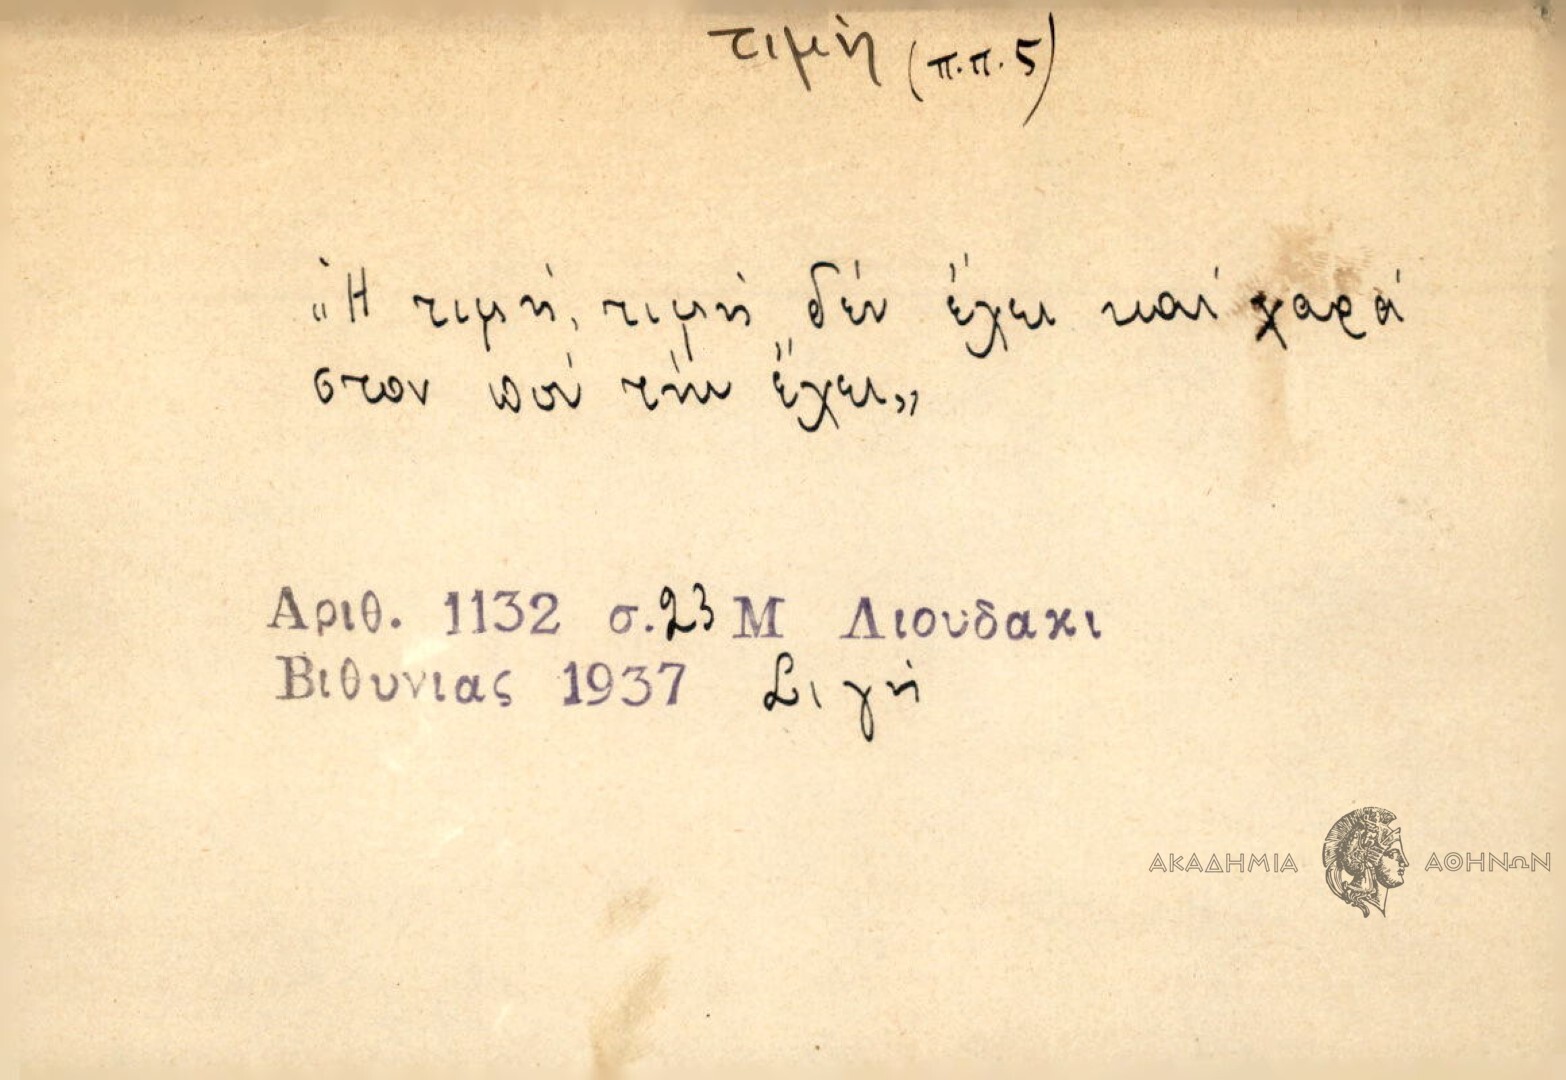 τιμή (π.π. 5)
«Ἡ τιμή, τιμή δέν ἔχει καί χαρά
στον πού τήν ἔχει»
Αριθ. 1132 σ.23 Μ Λιουδακι
Βιθυνιας 1937 Σιγή
ΑΚΑΔΗΜΙΑ ΑΘΗΝΩΝ